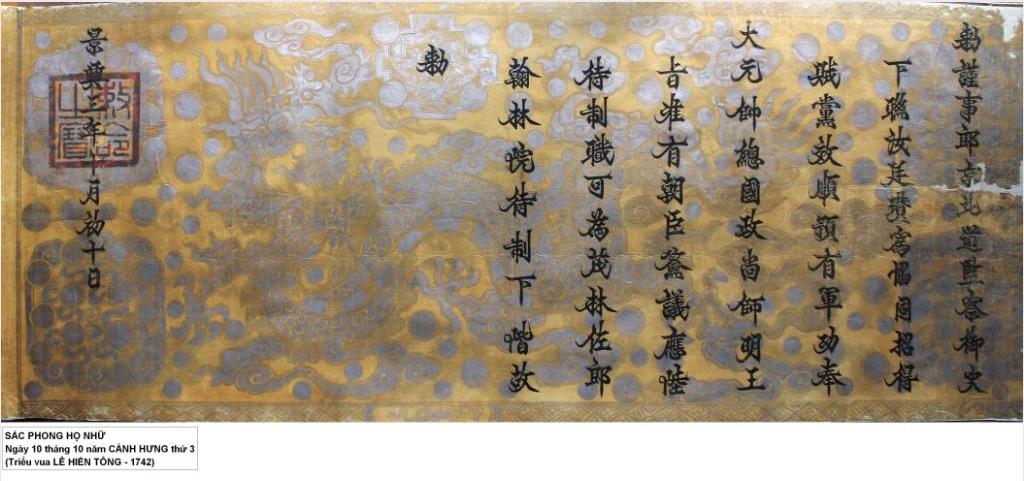 勅謹事郎京北道監察御史
下聯汝廷瓚為恊同招得
賊黨效順頗有軍功奉
大元帥總國政尚師明王
旨准有朝臣僉議應陞
待制職可為茂林佐郎
翰林院待制下階故
勅
景興三年十月初十日
敕命之寶
SẮC PHONG HỌ NHỮ
Ngày 10 tháng 10 năm CẢNH HƯNG thứ 3
(Triều vua LÊ HIỂN TÔNG - 1742)